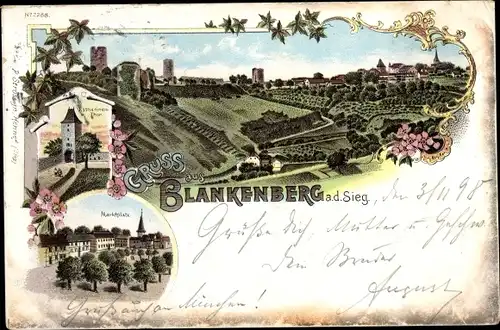 No 7288.
Gruss aus
BLANKENBERG a.d. Sieg.
Marktplatz
den 3/11 98
Grüße dich, Mutter u. Geschw.
Dein Bruder
August
Gruß an München!